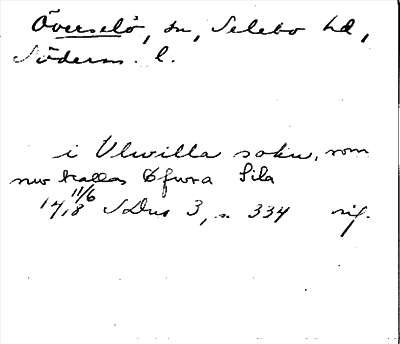 Överselö, sn, Selebo hd,
Söderm. l.
i Ulwilla sokn, som
nw kallas Öfwra Sila
11/6
1418 SDns 3, s. 334 rif.